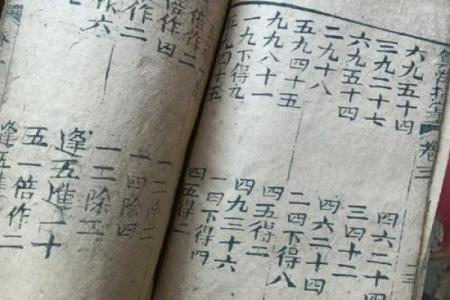 卷三
六九五十四
三九二十七
六九五十四
二九十八
五九四十五
九九八十一
一九下得九
五九四十五
四六二十四
三四十二
四六二十四
二四下得八
四五得二
四九三十六
一四下得四
四五得二
倍作二
倍作四
作二
作六
一二除二
一四除四
一工除工
逢五進一十
五一倍作二
逢五進